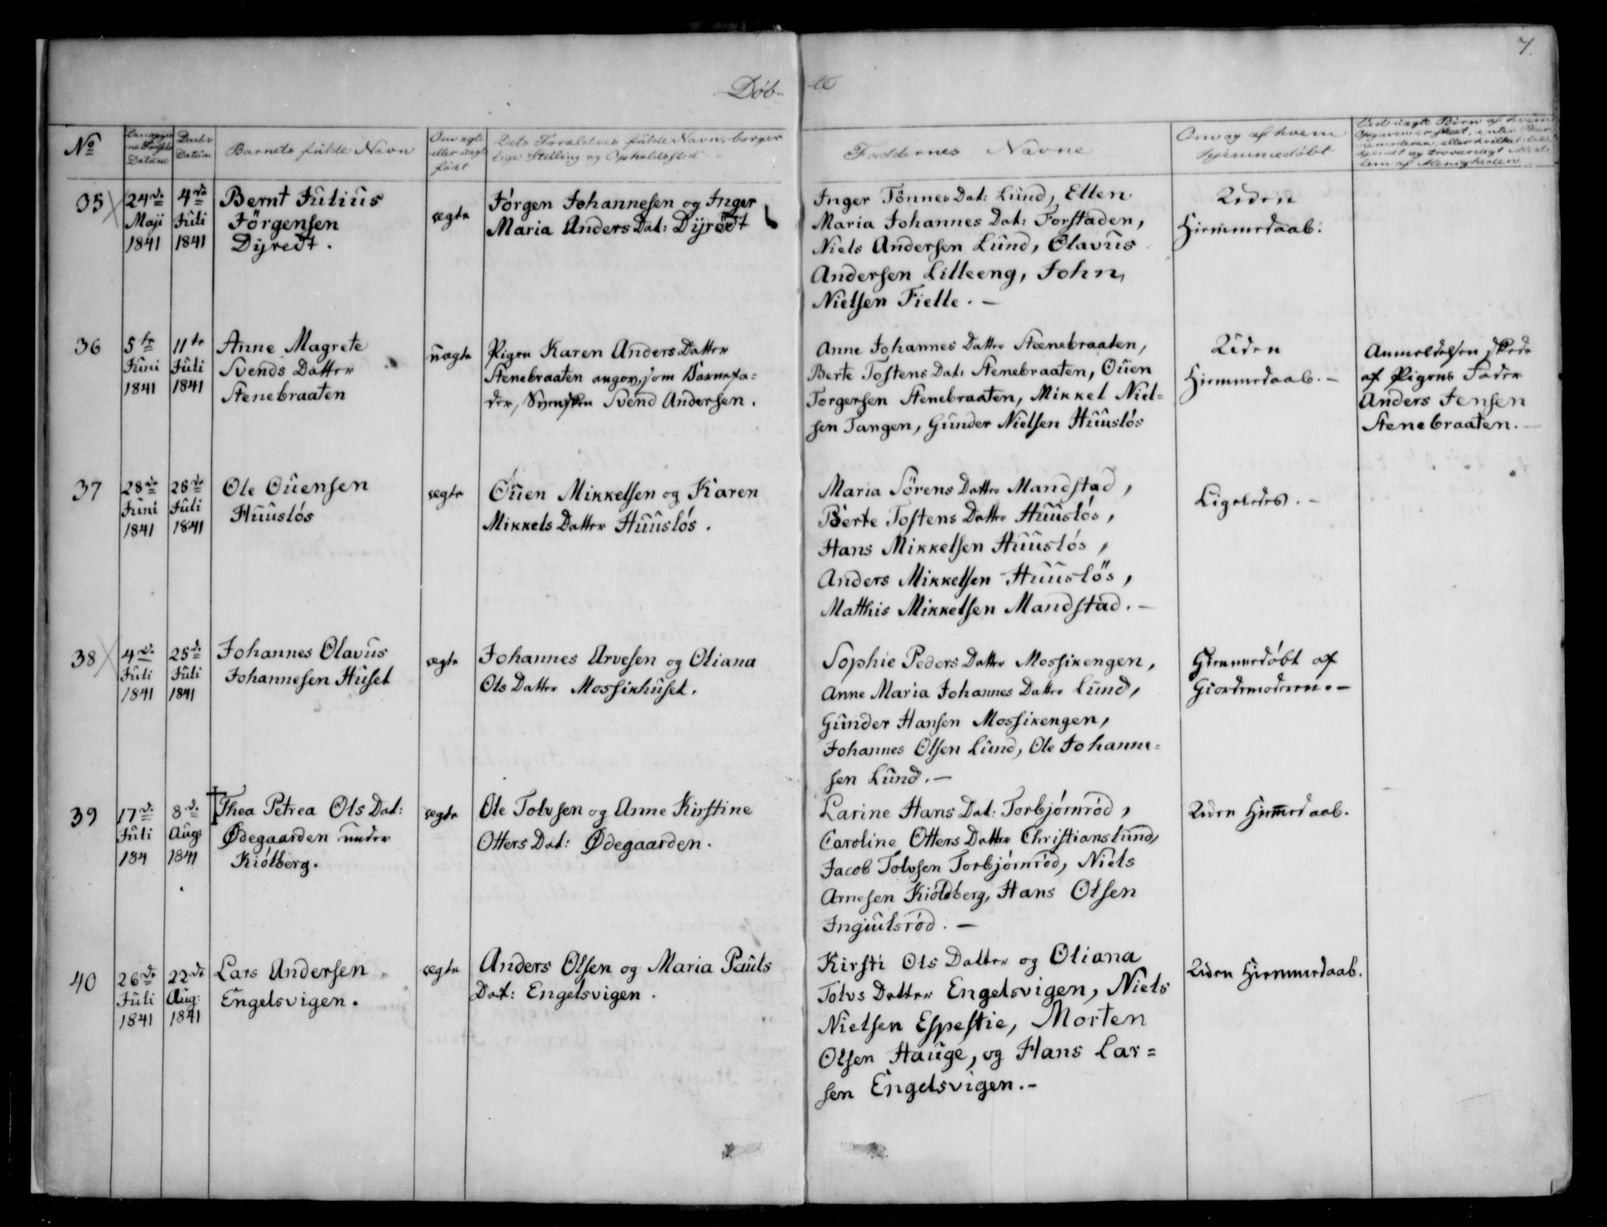 7.
Døb- te
No
Daabs
Datum
Barnets fulde Navn
Om ægte
eller uægte
født
Dets Forældres fulde Navn, borger
lige Stilling og Opholdssted
Faddernes Navne
Om og af hvem
hjemmedøbt
35
24de
Maji
1841
4de
Juli
1841
Bernt Julius
Jörgensen
Dyredt.
ægte
Jörgen Johannesen og Inger
Maria Anders Dat: Dyredt
Inger Tönnes Dat: Lund, Ellen
Maria Johannes Dat: Forstaden,
Niels Andersen Lund, Olavus
Andersen Lilleeng, John
Nielsen Fielle. —
Uden
Hiemmedaab.
36
5te
Juni
1841
11te
Juli
1841
Anne Magrete
Svends Datter
Stenebraaten
uægte
Pigen Karen Anders Datter
Stenebraaten angav, som Barnefa=
der, Svensken Svend Andersen.
Anne Johannes Datter Stenebraaten,
Berte Tostens Dat: Stenebraaten, Ouen
Torgersen Stenebraaten, Mikkel Niel=
sen Tangen, Gunder Nielsen Huuslós
Uden
Hiemmedaab. —
Anmeldelsen skede
af Pigens Fader
Anders Jensen
Stenebraaten. —
37
28de
Juni
1841
25de
Juli
1841
Ole Ouensen
Huuslós
ægte
Ouen Mikkelsen og Karen
Mikkels Datter Huuslós.
Maria Sörens Datter Mandstad,
Berte Tostens Datter Huuslós,
Hans Mikkelsen Huuslós,
Anders Mikkelsen Huuslös,
Matthis Mikkelsen Mandstad. —
Ligeledes. —
38
4de
Juli
1841
25de
Juli
1841
Johannes Olavus
Johannesen Huset
ægte
Johannes Arvesen og Oliana
Ols Datter Mossikhuset.
Sophie Peders Datter Mossikengen,
Anne Maria Johannes Datter Lund,
Gunder Hansen Mossikengen,
Johannes Olsen Lund, Ole Johanne=
sen Lund. —
Hiemmedøbt af
Giordemoderen. —
39
17de
Juli
184
8de
Aug:
1841
Thea Petrea Ols Dat:
Ødegaarden under
Kiölberg.
ægte
Ole Tolvsen og Anne Kirstine
Otters Dat: Ødegaarden.
Larine Hans Dat: Torbjórnród,
Caroline Otters Datter Christianslund,
Jacob Tolvsen Torbjørnröd, Niels
Arnesen Kiölberg, Hans Olsen
Ingiulsröd. —
Uden Hiemmedaab.
40
26de
Juli
1841
22de
Aug:
1841
Lars Andersen
Engelsvigen.
ægte
Anders Olsen og Maria Pauls
Dat: Engelsvigen.
Kirsti Ols Datter og Oliana
Tolvs Datter Engelsvigen, Niels
Nielsen Espestie, Morten
Olsen Hauge, og Hans Lar=
sen Engelsvigen. —
Uden Hiemmedaab.